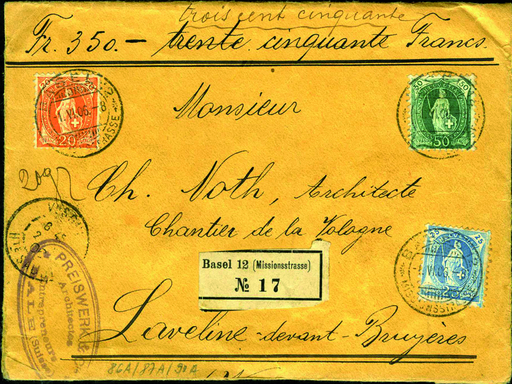 trois cent cinquante
Fr. 350.— trente cinquante Francs.
20
50
25
Monsieur
Ch. Noth, Architecte
Chantier de la Vologne
Basel 12 (Missionsstrasse)
№ 17
Laveline-devant-Bruyères
PREISWERK
Architectes
Entrepreneurs
BALE (Suisse)
86A/87A/90A